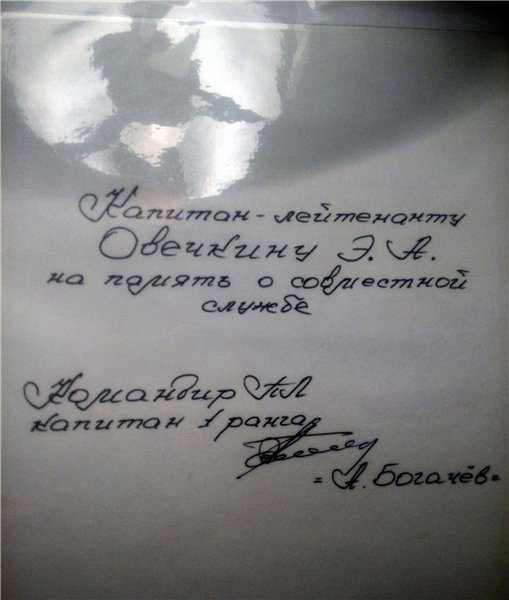 Капитан-лейтенанту
Овечкину Э. А.
на память о совместной
службе
Командир ПЛ
капитан 1 ранга
= А. Богачёв =